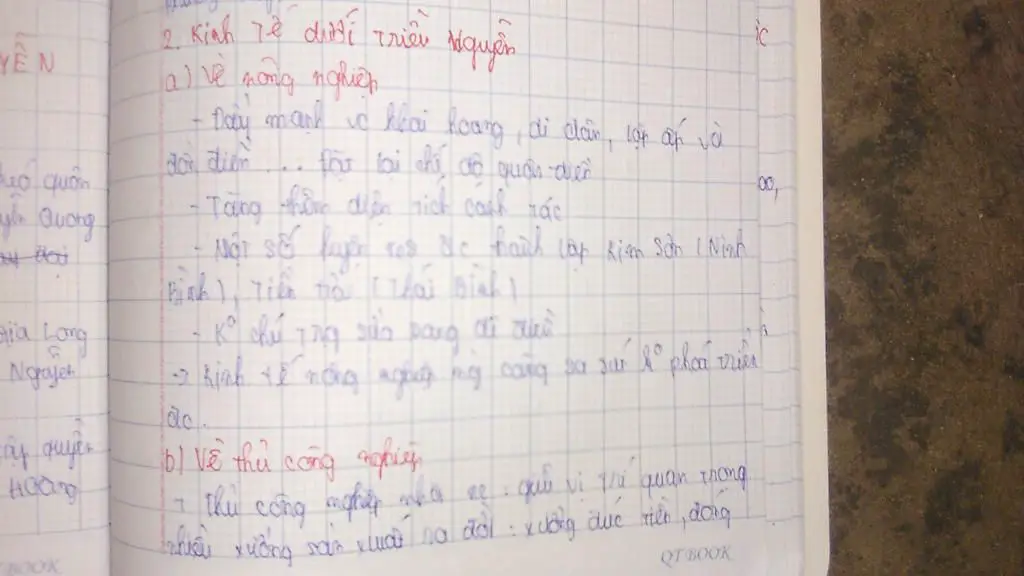 YỄN
quân
Quang
Gia Long
Nguyễn
quyền
Hoàng
2. Kinh Tế dưới Triều Nguyễn
a) Về nông nghiệp
- Đẩy mạnh vc khai hoang, di dân, lập ấp và
đồn điền ... đặt lại chế độ quân điền
- Tăng thêm diện tích canh tác
- Một số huyện đc thành lập Kim Sơn (Ninh
Bình), Tiền Hải (Thái Bình)
- K° chú trng sửa sang đê điều
-> Kinh tế nông nghiệp ng càng sa sút k° phát triển
đc.
b) Về thủ công nghiệp
+ Thủ công nghiệp nhà nc: giữ vị trí quan trọng
nhiều xưởng sản xuất ra đời: xưởng đúc tiền, đóng
QT BOOK
BOOK